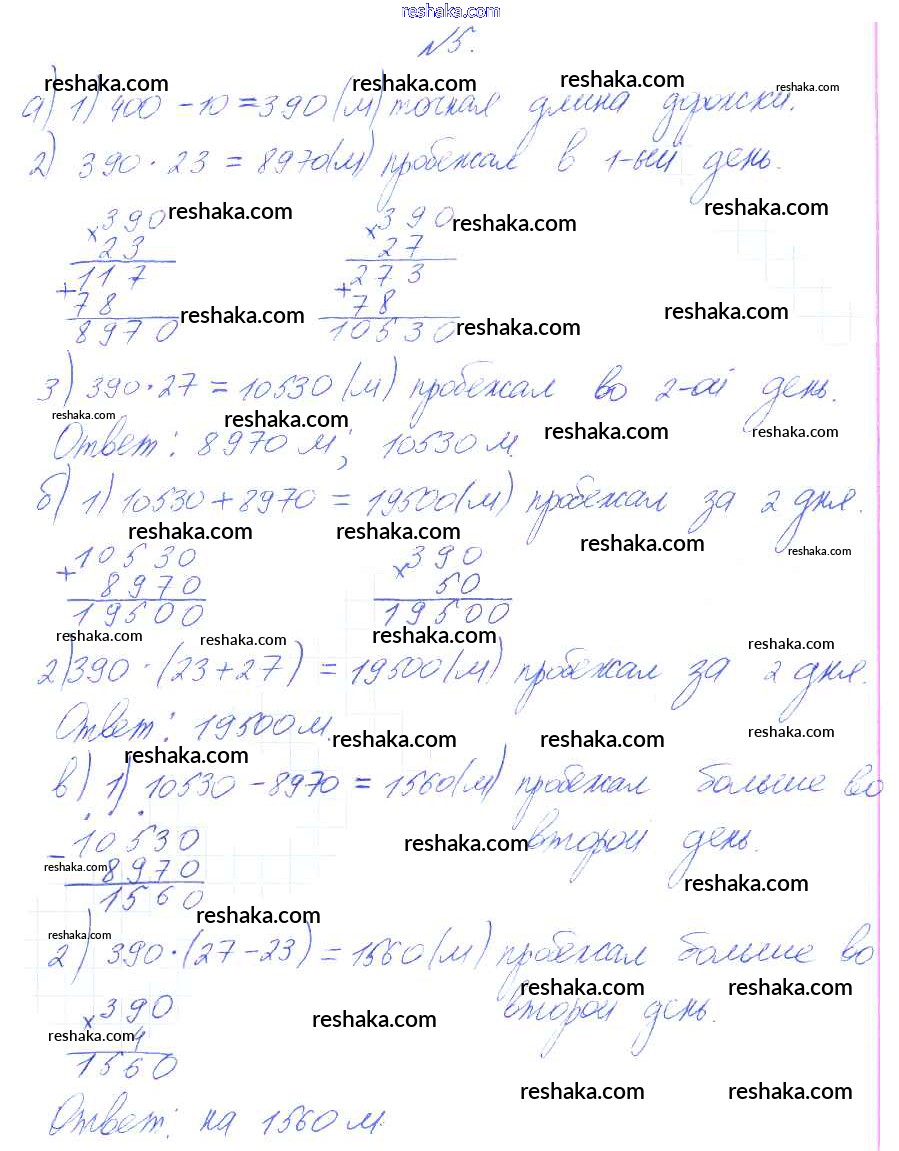 reshaka.com
№5.
reshaka.com reshaka.com reshaka.com reshaka.com
а) 1) 400 - 10 = 390 (м) точная длина дорожки.
2) 390 · 23 = 8970(м) пробежал в 1-ый день.
reshaka.com
×390 reshaka.com ×390 reshaka.com
23 27
117 273
+78 +78
8970 reshaka.com 10530 reshaka.com reshaka.com
3) 390 · 27 = 10530 (м) пробежал во 2-ой день.
reshaka.com reshaka.com reshaka.com reshaka.com
Ответ: 8970 м; 10530 м.
б) 1) 10530 + 8970 = 19500(м) пробежал за 2 дня.
reshaka.com reshaka.com reshaka.com reshaka.com
+10530 ×390
8970 50
19500 19500
reshaka.com reshaka.com reshaka.com reshaka.com
2) 390 · (23 + 27) = 19500(м) пробежал за 2 дня.
Ответ: 19500 м.
reshaka.com reshaka.com reshaka.com reshaka.com
в) 1) 10530 - 8970 = 1560(м) пробежал больше во
второй день.
-10530 reshaka.com
reshaka.com 8970 reshaka.com
1560
reshaka.com
reshaka.com
2) 390 · (27 - 23) = 1560(м) пробежал больше во
reshaka.com reshaka.com
второй день.
×390 reshaka.com
reshaka.com 4
1560
reshaka.com reshaka.com
Ответ: на 1560 м.